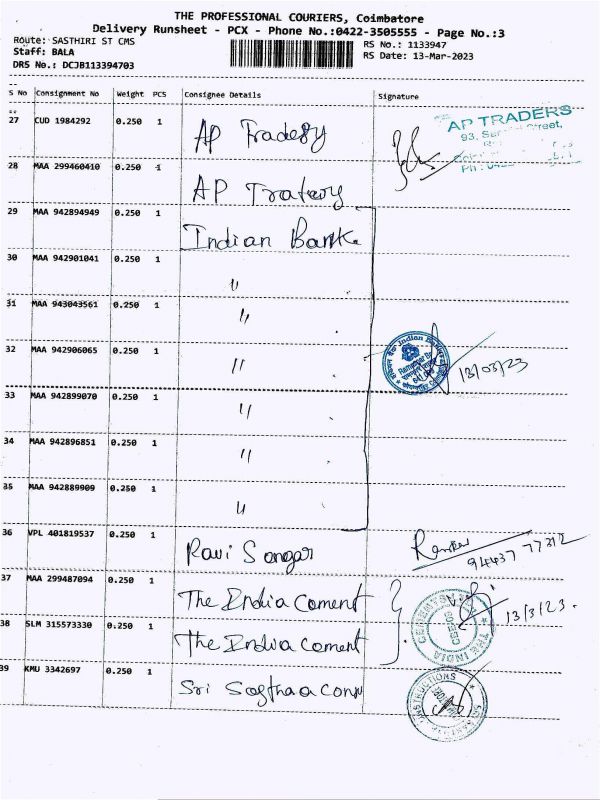 THE PROFESSIONAL COURIERS, Coimbatore
Delivery Runsheet - PCX - Phone No.:0422-3505555 - Page No.:3
Route: SASTHIRI ST CMS
Staff: BALA
DRS No.: DCJB113394703
RS No.: 1133947
RS Date: 13-Mar-2023
S No Consignment No Weight PCS Consignee Details Signature
27 CUD 1984292 0.250 1 AP Traders
AP TRADERS
93, Street,
28 MAA 299460410 0.250 1 AP Traders
29 MAA 942894949 0.250 1 Indian Bank.
30 MAA 942901041 0.250 1 "
31 MAA 943043561 0.250 1 "
32 MAA 942906065 0.250 1 " 13/03/23
Indian Bank
33 MAA 942899070 0.250 1 "
34 MAA 942896851 0.250 1 "
35 MAA 942889909 0.250 1 "
36 VPL 401819537 0.250 1 Ravi Sangar
94437 77312
37 MAA 299487094 0.250 1 The India Cement
13/3/23.
THE INDIA CEMENTS
38 SLM 315573330 0.250 1 The India Cement
39 KMU 3342697 0.250 1 Sri Sasthaa Conn